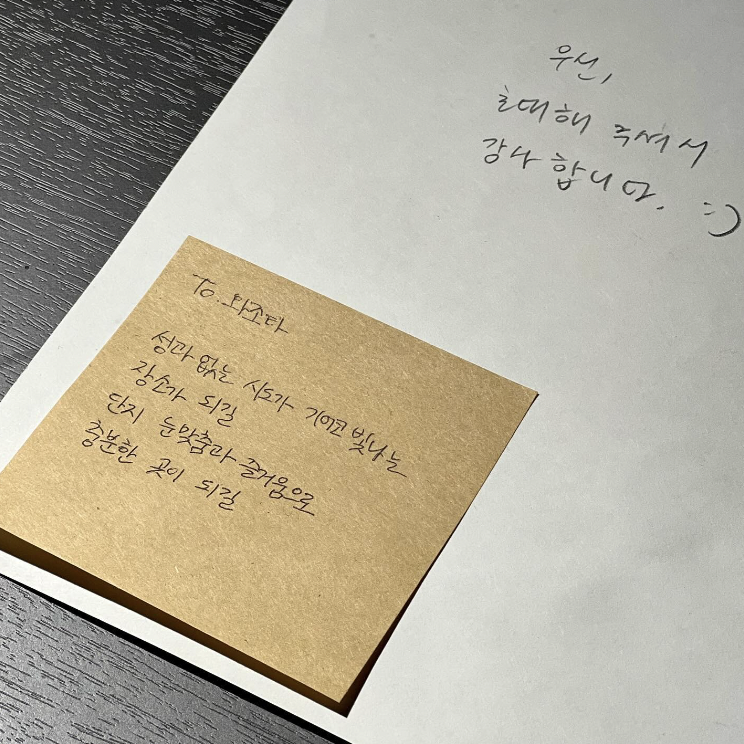 우선,
초대해 주셔서
감사합니다. :)
To. 와조타
성과 없는 시도가 기어코 빛나는
장소가 되길
단지 눈맞춤과 즐거움으로
충분한 곳이 되길